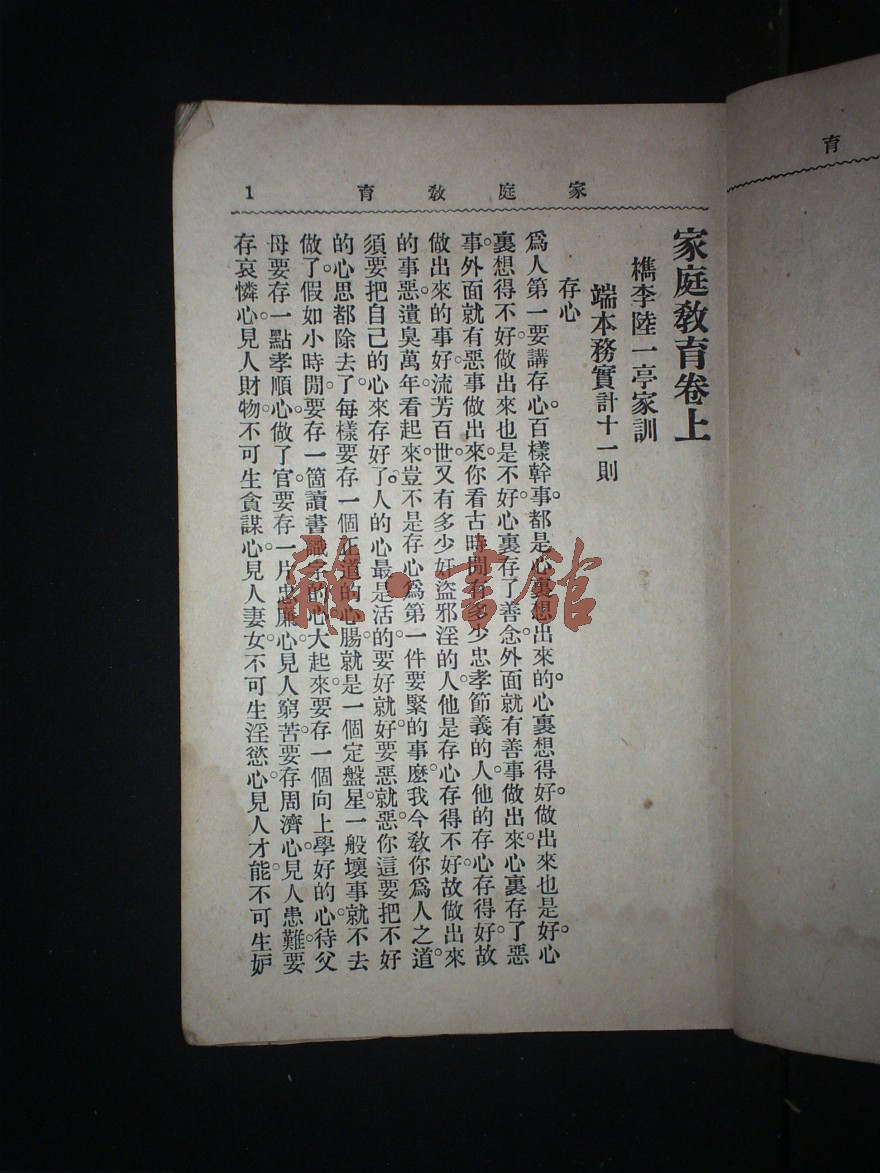 育
家庭教育 1
家庭教育卷上
檇李陸一亭家訓
端本務實計十一則
存心
爲人第一要講存心。百樣幹事。都是心裏想出來的。心裏想得好。做出來也是好。心
裏想得不好。做出來也是不好。心裏存了善念。外面就有善事做出來。心裏存了惡
事。外面就有惡事做出來。你看古時閒有多少忠孝節義的人。他的存心存得好。故
做出來的事好。流芳百世。又有多少奸盜邪淫的人。他是存心存得不好。故做出來
的事惡。遺臭萬年。看起來豈不是存心爲第一件要緊的事麽。我今敎你爲人之道。
須要把自己的心來存好了。人的心最是活的。要好就好。要惡就惡。你這要把不好
的心思都除去了。每樣要存一個正道的心腸。就是一個定盤星一般。壞事就不去
做了。假如小時閒。要存一箇讀書識字的心。大起來要存一個向上學好的心。待父
母要存一點孝順心。做了官。要存一片忠廉心。見人窮苦。要存周濟心。見人患難。要
存哀憐心。見人財物。不可生貪謀心。見人妻女。不可生淫慾心。見人才能。不可生妒
雜·書館